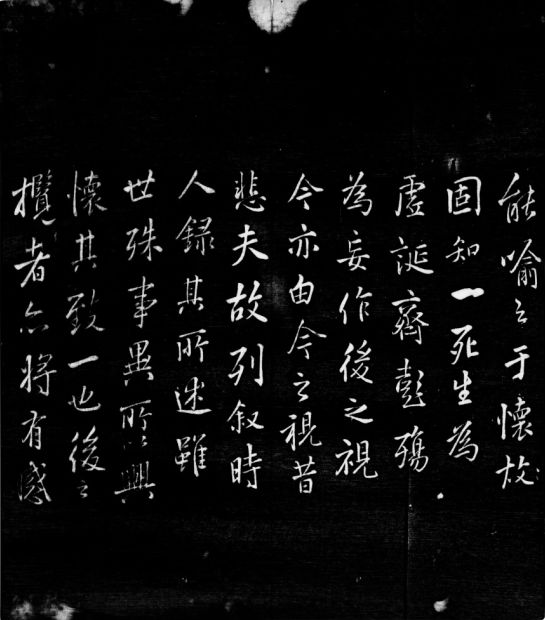 能喻之于懷
固知一死生為
虛誕齊彭殤
為妄作後之視
今亦由今之視昔
悲夫故列叙時
人録其所述雖
世殊事異所以興
懷其致一也後之
攬者亦將有感